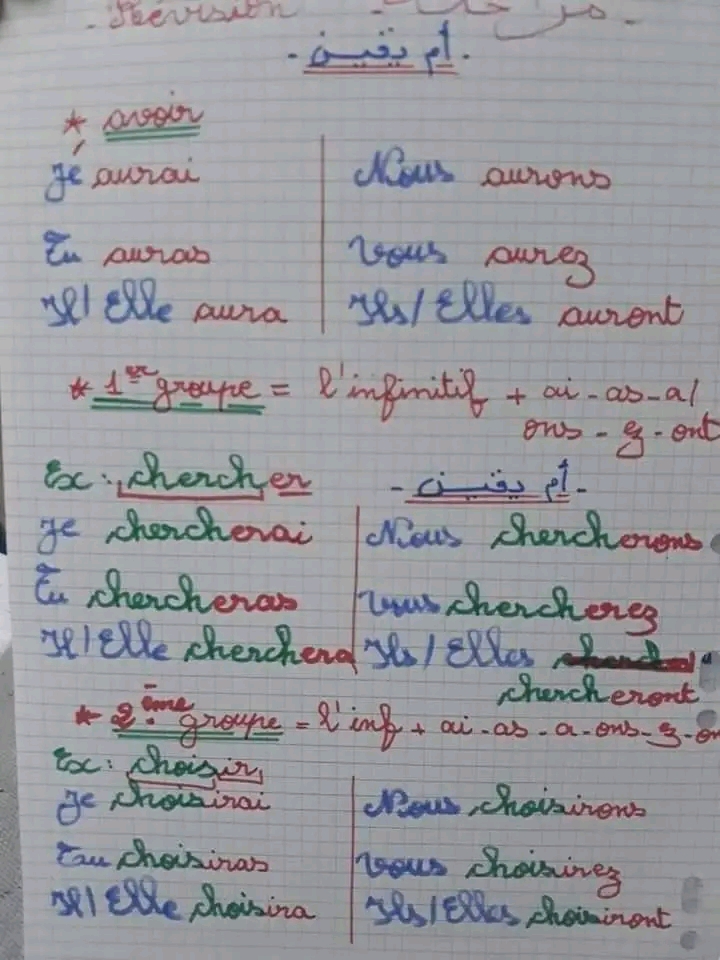 Révision - مراجعة -
- أم يقين -
* avoir
J'aurai Nous aurons
Tu auras Vous aurez
Il/Elle aura Ils/Elles auront
* 1er groupe = l'infinitif + ai - as - a/
ons - ez - ont
Ex : chercher - أم يقين -
Je chercherai Nous chercherons
Tu chercheras Vous chercherez
Il/Elle cherchera Ils/Elles
chercheront
* 2ème groupe = l'inf + ai - as - a - ons - ez - on
Ex : choisir
Je choisirai Nous choisirons
Tu choisiras Vous choisirez
Il/Elle choisira Ils/Elles choisiront